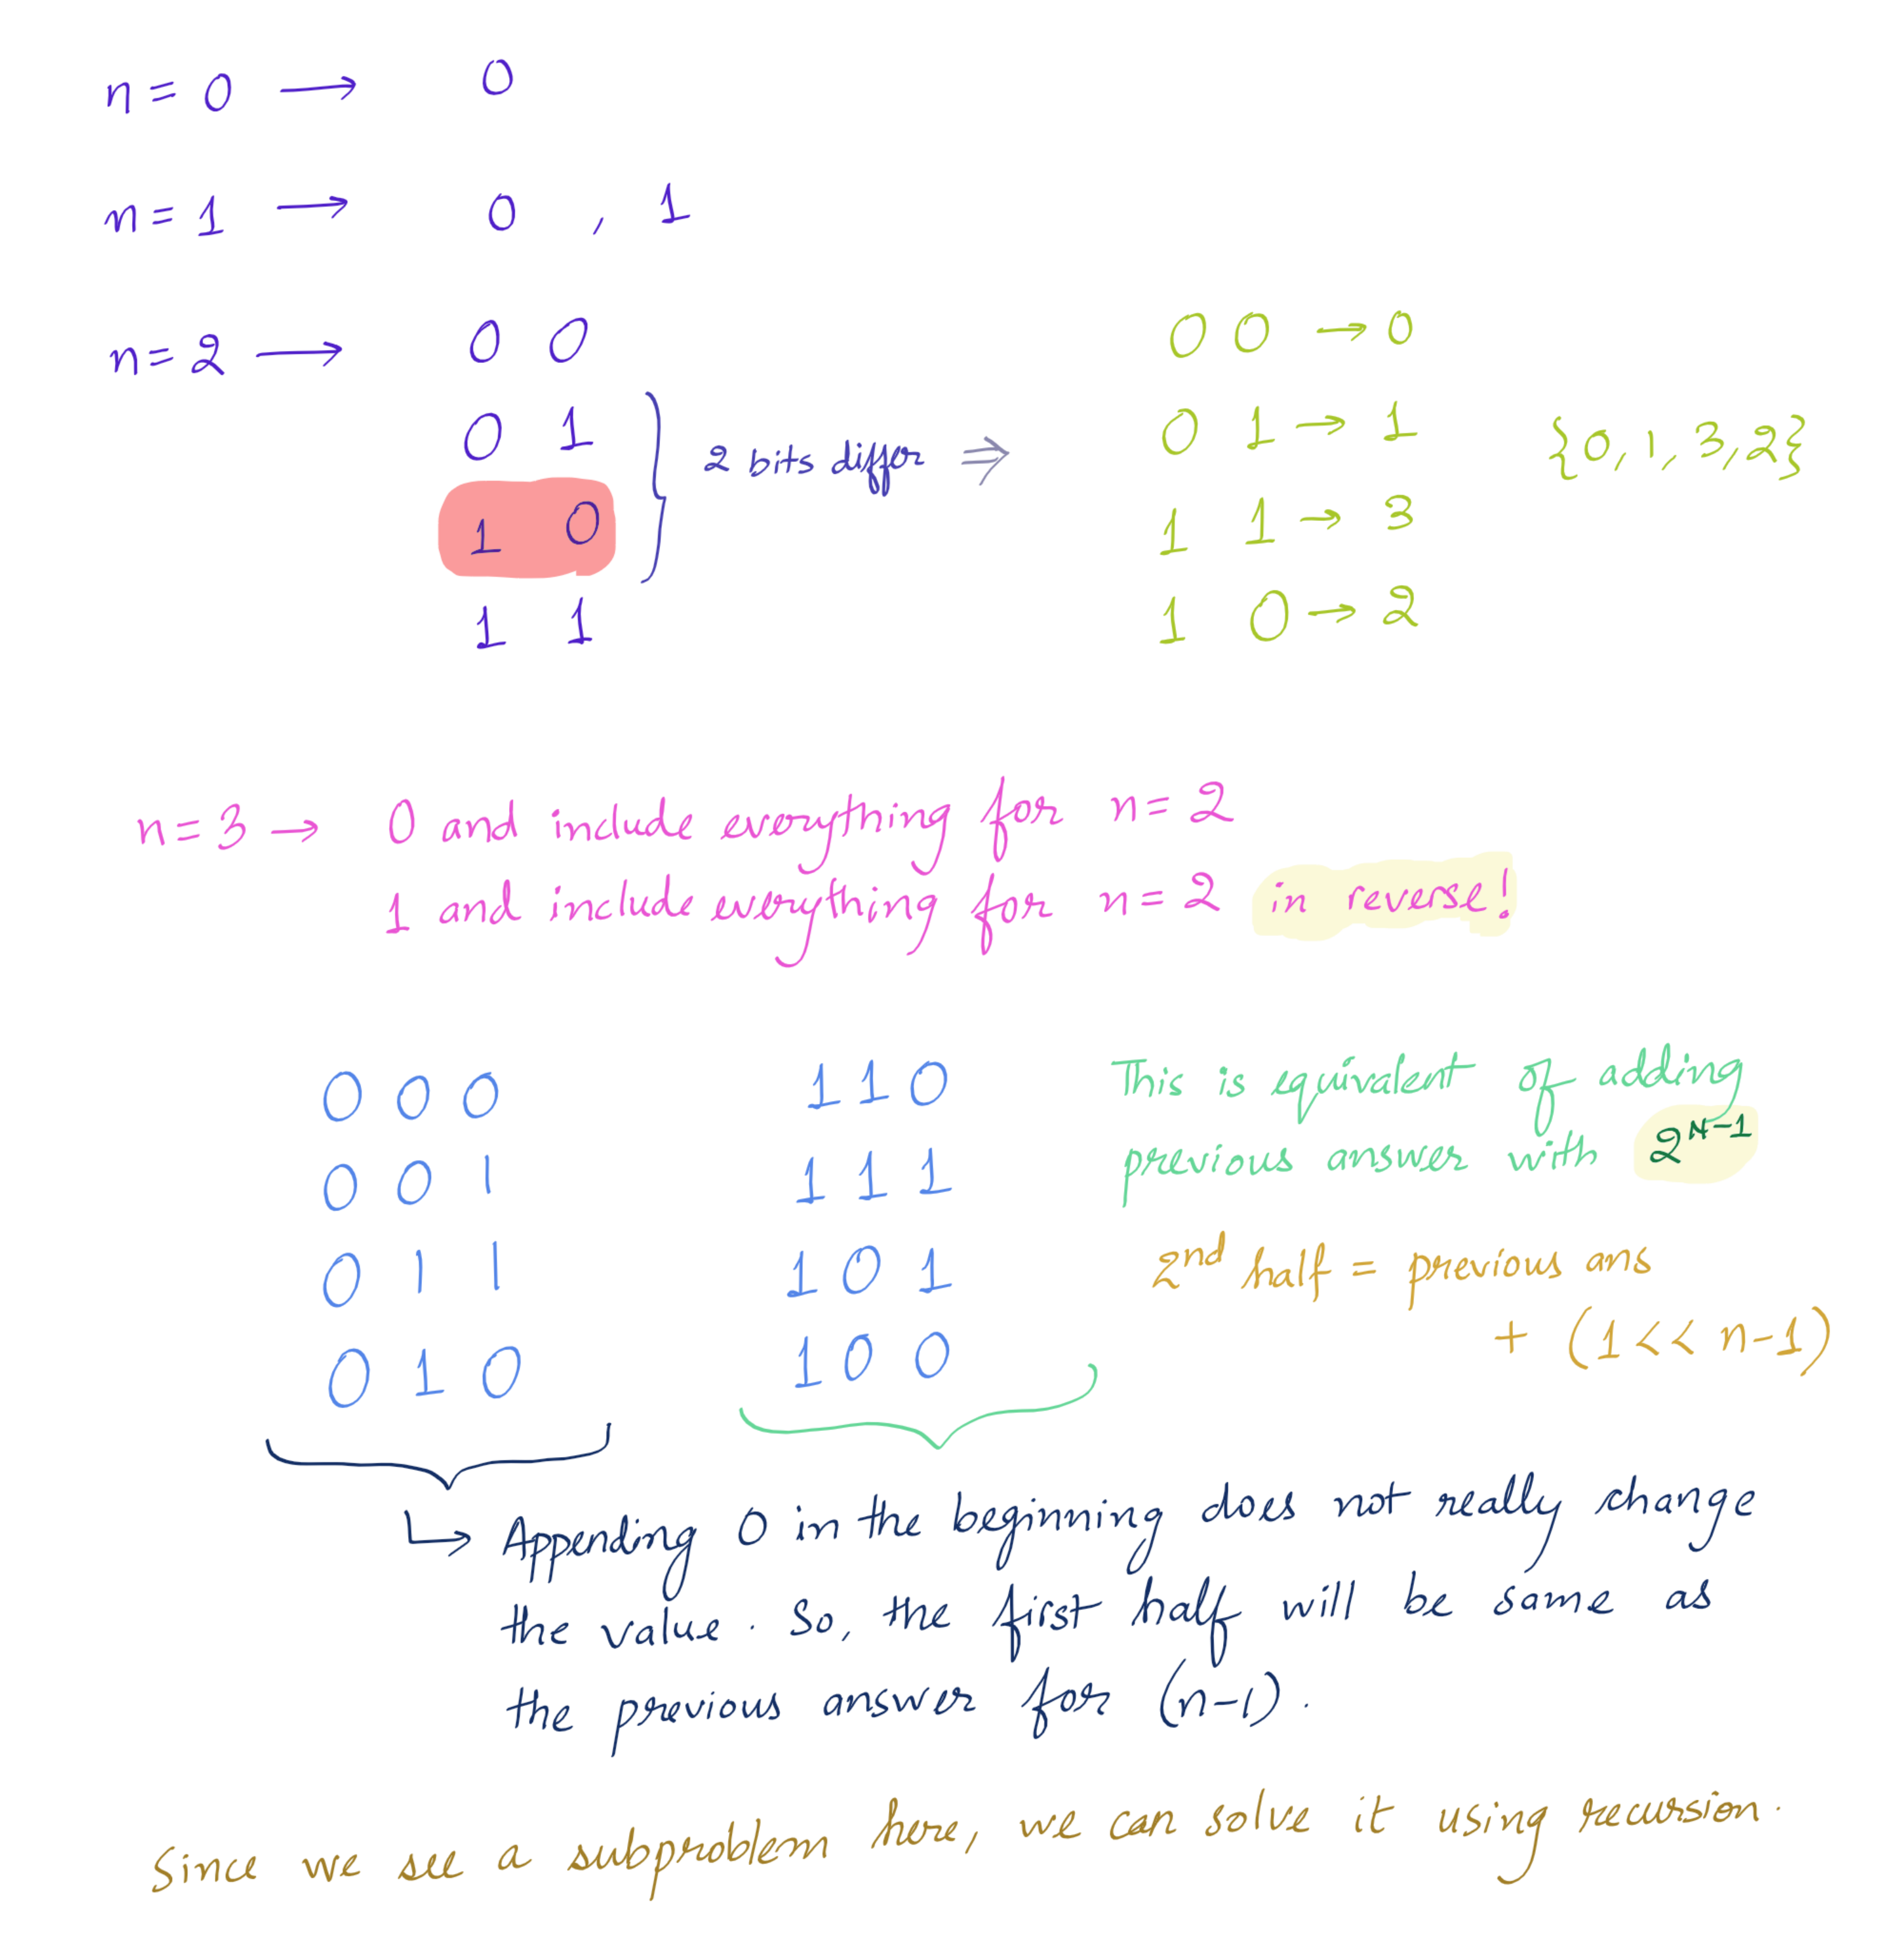 n = 0 → 0
n = 1 → 0 , 1
n = 2 → 0 0
0 1
1 0
1 1
2 bits differ ⇒
0 0 → 0
0 1 → 1
1 1 → 3
1 0 → 2
{0, 1, 3, 2}
n = 3 → 0 and include everything for n = 2
1 and include everything for n = 2 in reverse!
0 0 0
0 0 1
0 1 1
0 1 0
1 1 0
1 1 1
1 0 1
1 0 0
This is equivalent of adding
previous answer with 2^N-1
2nd half = previous ans
+ (1 << n-1)
↳ Appending 0 in the beginning does not really change
the value. So, the first half will be same as
the previous answer for (n-1).
Since we see a subproblem here, we can solve it using recursion.